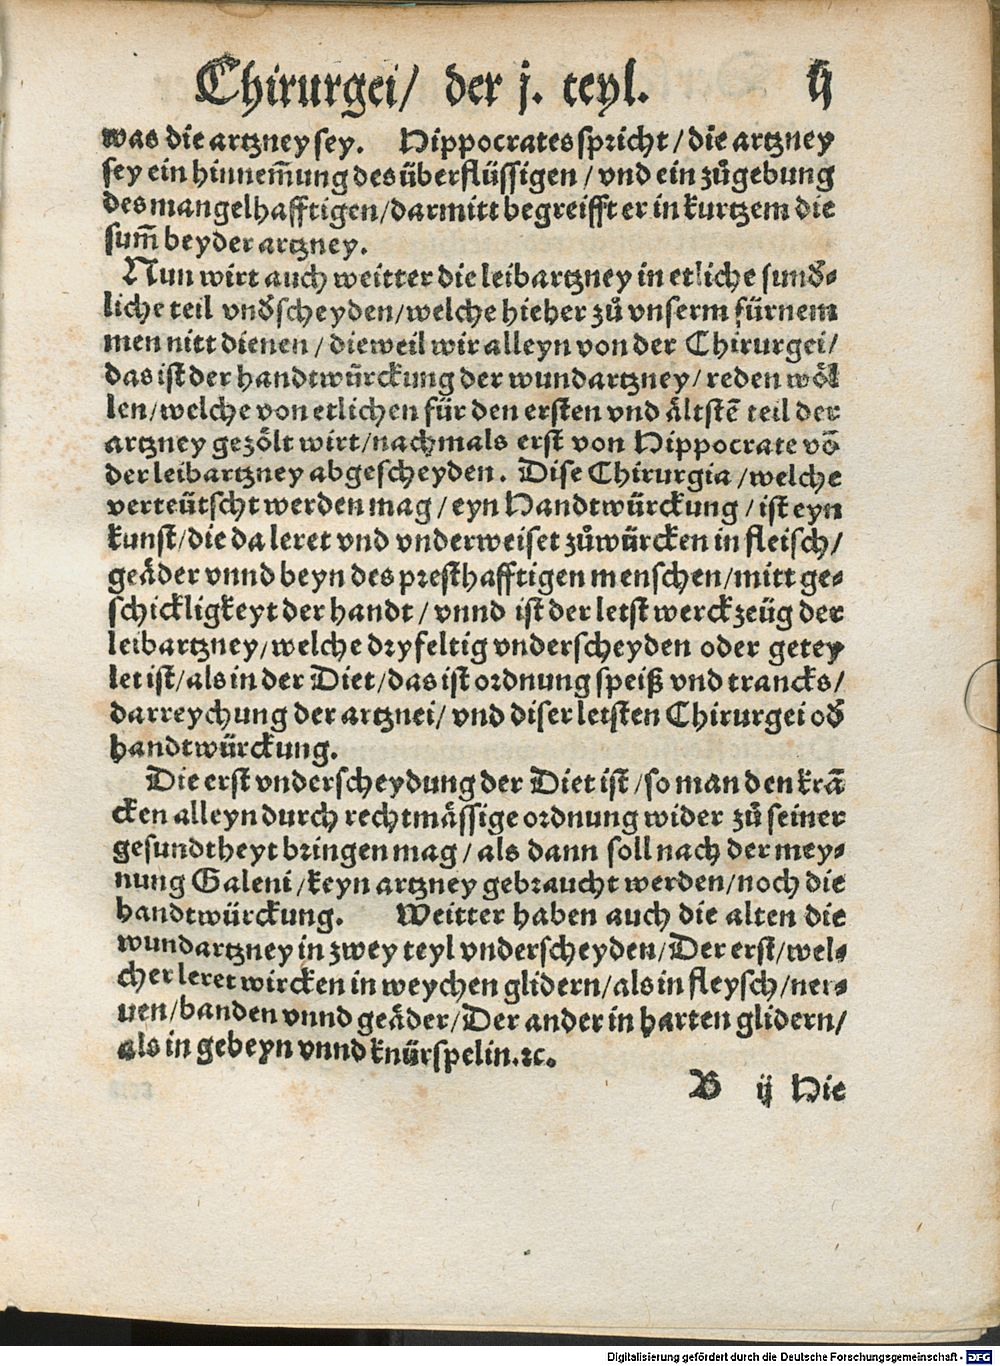 Chirurgei/ der j. teyl. ij
was die artzney sey. Hippocrates spricht/die artzney
sey ein hinnem̃ung des überflüssigen/vnd ein zůgebung
des mangelhafftigen/darmitt begreifft er in kurtzem die
sum̃ beyder artzney.
Nun wirt auch weitter die leibartzney in etliche sund'-
liche teil vnd'scheyden/welche hieher zů vnserm fürnem
men nitt dienen/dieweil wir alleyn von der Chirurgei/
das ist der handtwürckung der wundartzney/reden wöl
len/welche von etlichen für den ersten vnd ältstē teil der
artzney gezölt wirt/nachmals erst von Hippocrate vō
der leibartzney abgescheyden. Dise Chirurgia/welche
verteütscht werden mag/eyn Handtwürckung/ist eyn
kunst/die da leret vnd vnderweiset zůwürcken in fleisch/
geäder vnnd beyn des presthafftigen menschen/mitt ge-
schickligkeyt der handt/vnnd ist der letst werckzeüg der
leibartzney/welche dryfeltig vnderscheyden oder getey
let ist/als in der Diet/das ist ordnung speiß vnd trancks/
darreychung der artznei/vnd diser letsten Chirurgei od'
handtwürckung.
Die erst vnderscheydung der Diet ist/so man den krā
cken alleyn durch rechtmässige ordnung wider zů seiner
gesundtheyt bringen mag/als dann soll nach der mey-
nung Galeni/keyn artzney gebraucht werden/noch die
handtwürckung. Weitter haben auch die alten die
wundartzney in zwey teyl vnderscheyden/Der erst/wel-
cher leret wircken in weychen glidern/als in fleysch/ner-
uen/banden vnnd geäder/Der ander in harten glidern/
als in gebeyn vnnd knürspelin.ꝛc.
B ij Hie
Digitalisierung gefördert durch die Deutsche Forschungsgemeinschaft - DFG